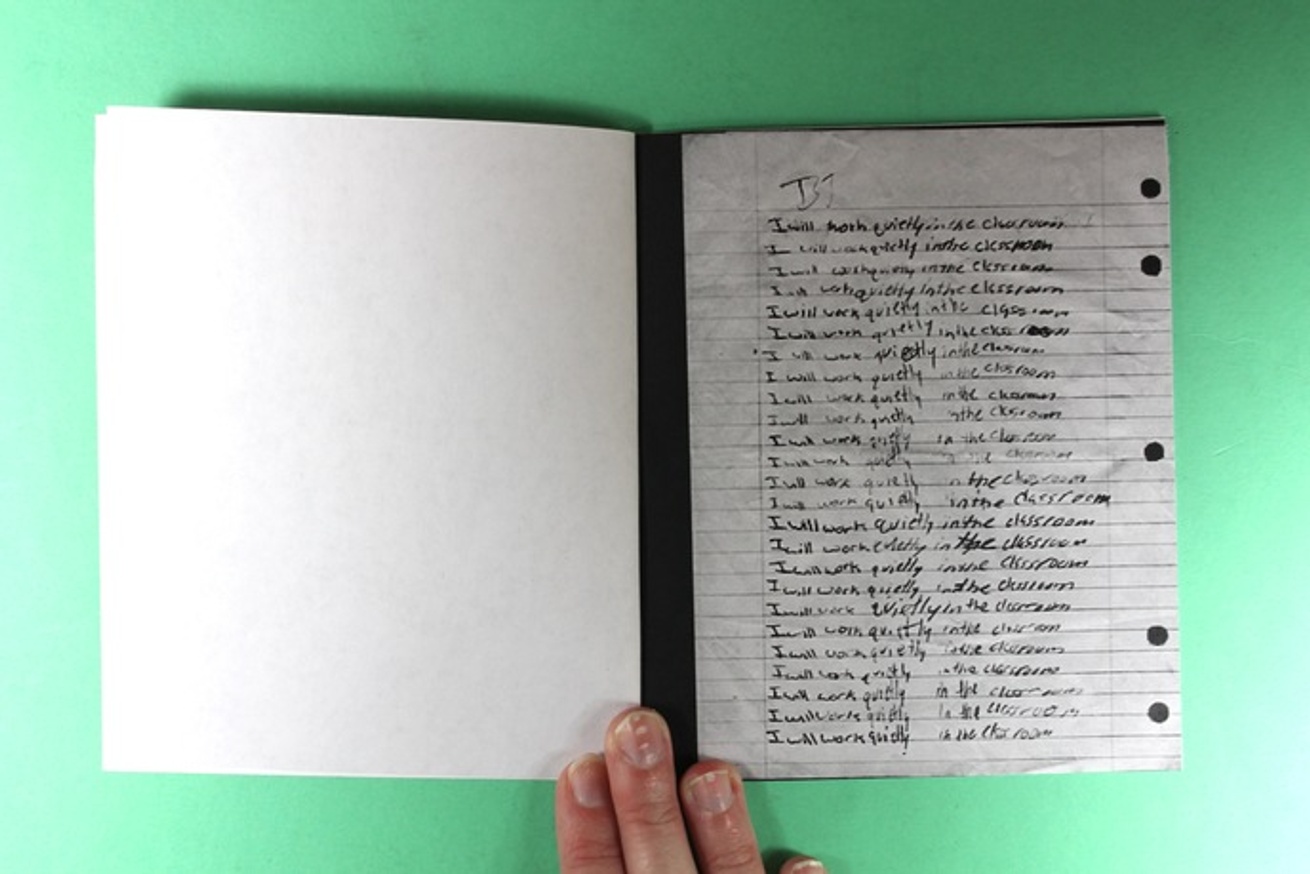 I will work quietly in the classroom
I will work quietly in the classroom
I will work quietly in the classroom
I will work quietly in the classroom
I will work quietly in the classroom
I will work quietly in the classroom
I will work quietly in the classroom
I will work quietly in the classroom
I will work quietly in the classroom
I will work quietly in the classroom
I will work quietly in the classroom
I will work quietly in the classroom
I will work quietly in the classroom
I will work quietly in the classroom
I will work quietly in the classroom
I will work quietly in the classroom
I will work quietly in the classroom
I will work quietly in the classroom
I will work quietly in the classroom
I will work quietly in the classroom
I will work quietly in the classroom
I will work quietly in the classroom
I will work quietly in the classroom
I will work quietly in the classroom
I will work quietly in the classroom